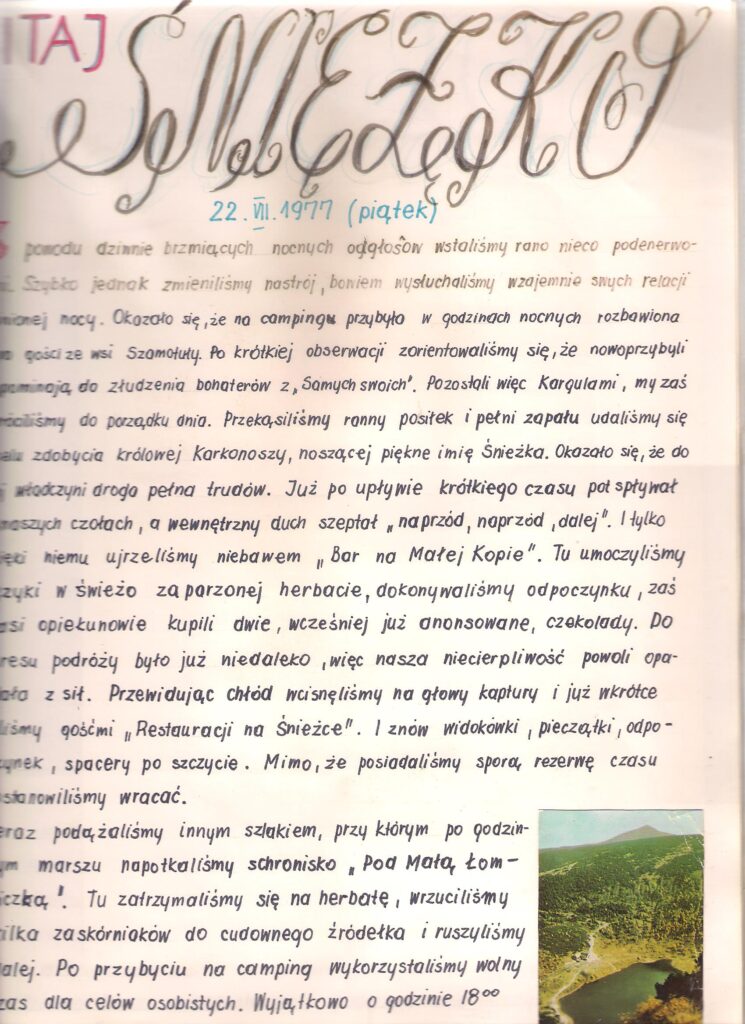 ITAJ
ŚNIEŻKO
22.VII.1977 (piątek)
powodu dziwnie brzmiących nocnych odgłosów wstaliśmy rano nieco podenerwo-
ni. Szybko jednak zmieniliśmy nastrój, bowiem wysłuchaliśmy wzajemnie swych relacji
nionej nocy. Okazało się, że na campingu przybyła w godzinach nocnych rozbawiona
gości ze wsi Szamotuły. Po krótkiej obserwacji zorientowaliśmy się, że nowoprzybyli
pominają do złudzenia bohaterów z „Samych swoich". Pozostali więc Kargulami, my zaś
ciliśmy do porządku dnia. Przekąsiliśmy ranny posiłek i pełni zapału udaliśmy się
elu zdobycia królowej Karkonoszy, noszącej piękne imię Śnieżka. Okazało się, że do
j władczyni droga pełna trudów. Już po upływie krótkiego czasu pot spływał
naszych czołach, a wewnętrzny duch szeptał „naprzód, naprzód, dalej". I tylko
ięki niemu ujrzeliśmy niebawem „Bar na Małej Kopie". Tu umoczyliśmy
zyki w świeżo zaparzonej herbacie, dokonywaliśmy odpoczynku, zaś
asi opiekunowie kupili dwie, wcześniej już anonsowane, czekolady. Do
resu podróży było już niedaleko, więc nasza niecierpliwość powoli opa-
ała z sił. Przewidując chłód wcisnęliśmy na głowy kaptury i już wkrótce
liśmy gośćmi „Restauracji na Śnieżce". I znów widokówki, pieczątki, odpo-
ynek, spacery po szczycie. Mimo, że posiadaliśmy sporą rezerwę czasu
stanowiliśmy wracać.
eraz podążaliśmy innym szlakiem, przy którym po godzin-
ym marszu napotkaliśmy schronisko „Pod Małą Łom-
iczką". Tu zatrzymaliśmy się na herbatę, wrzuciliśmy
ilka zaskórniaków do cudownego źródełka i ruszyliśmy
alej. Po przybyciu na camping wykorzystaliśmy wolny
zas dla celów osobistych. Wyjątkowo o godzinie 18⁰⁰